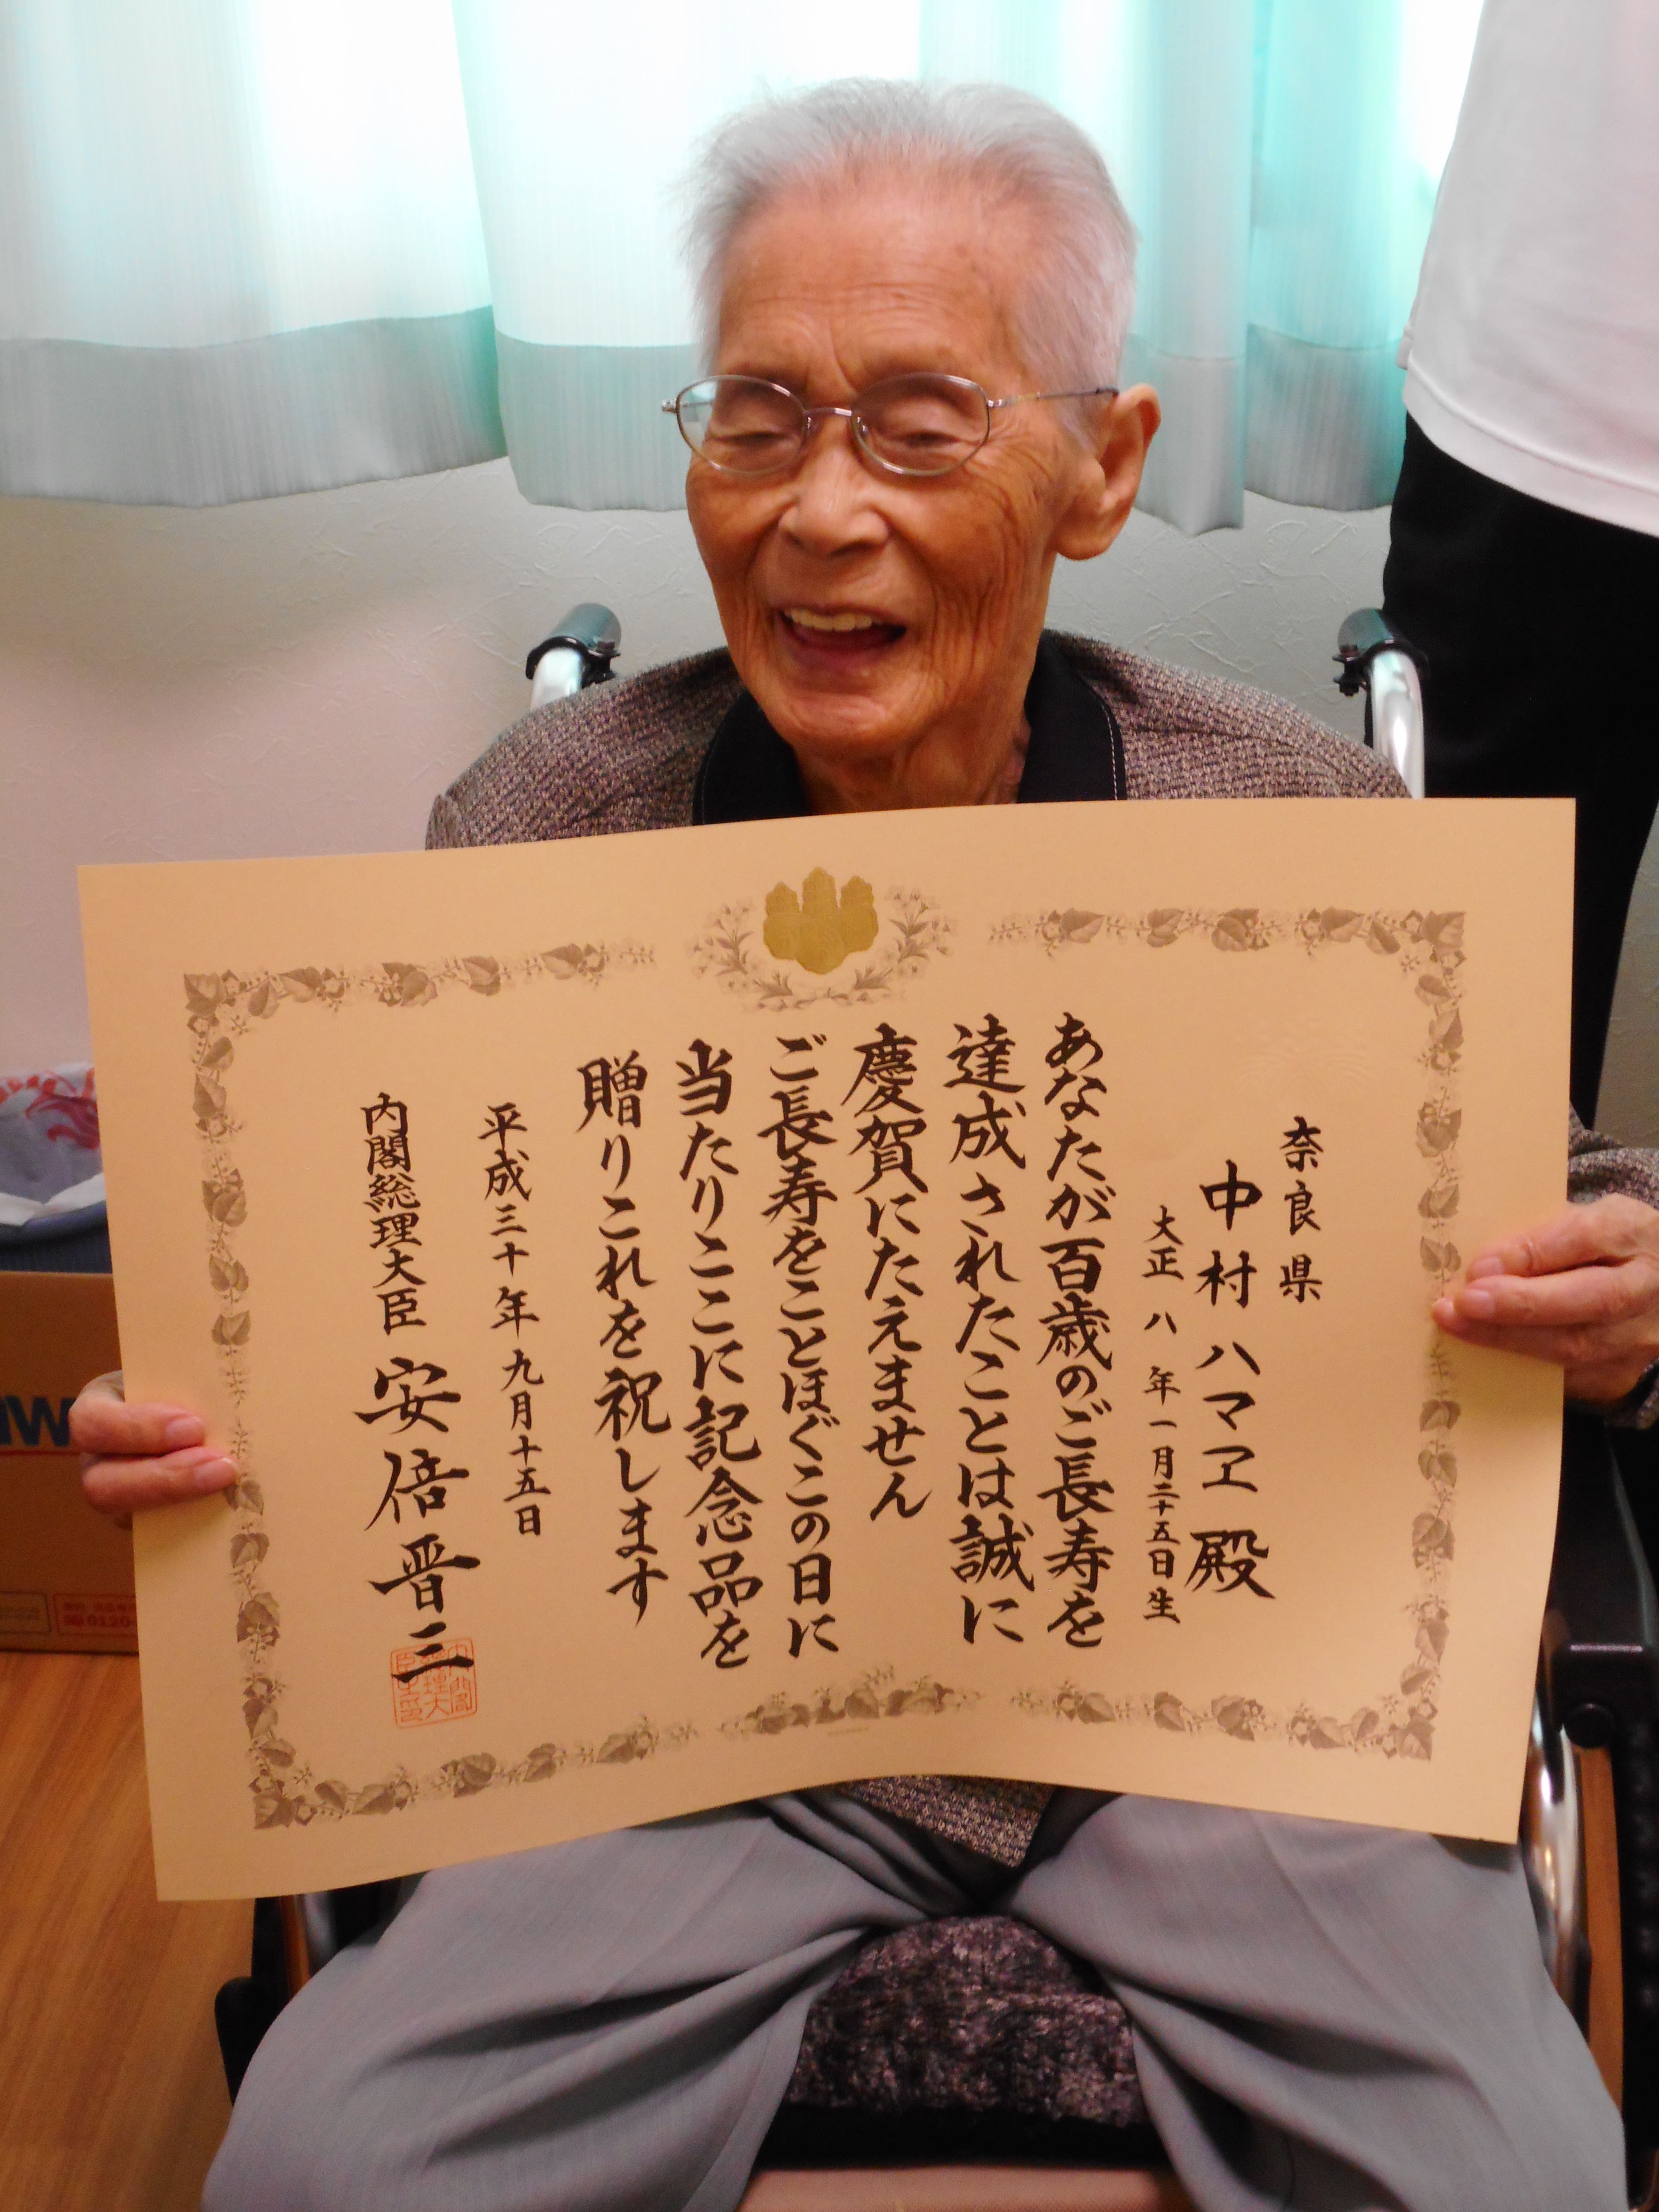 奈良県
中村ハマヱ殿
大正八年一月二十五日生
あなたが百歳のご長寿を
達成されたことは誠に
慶賀にたえません
ご長寿をことほぐこの日に
当たりここに記念品を
贈りこれを祝します
平成三十年九月十五日
内閣総理大臣 安倍晋三
内閣総理大臣之印